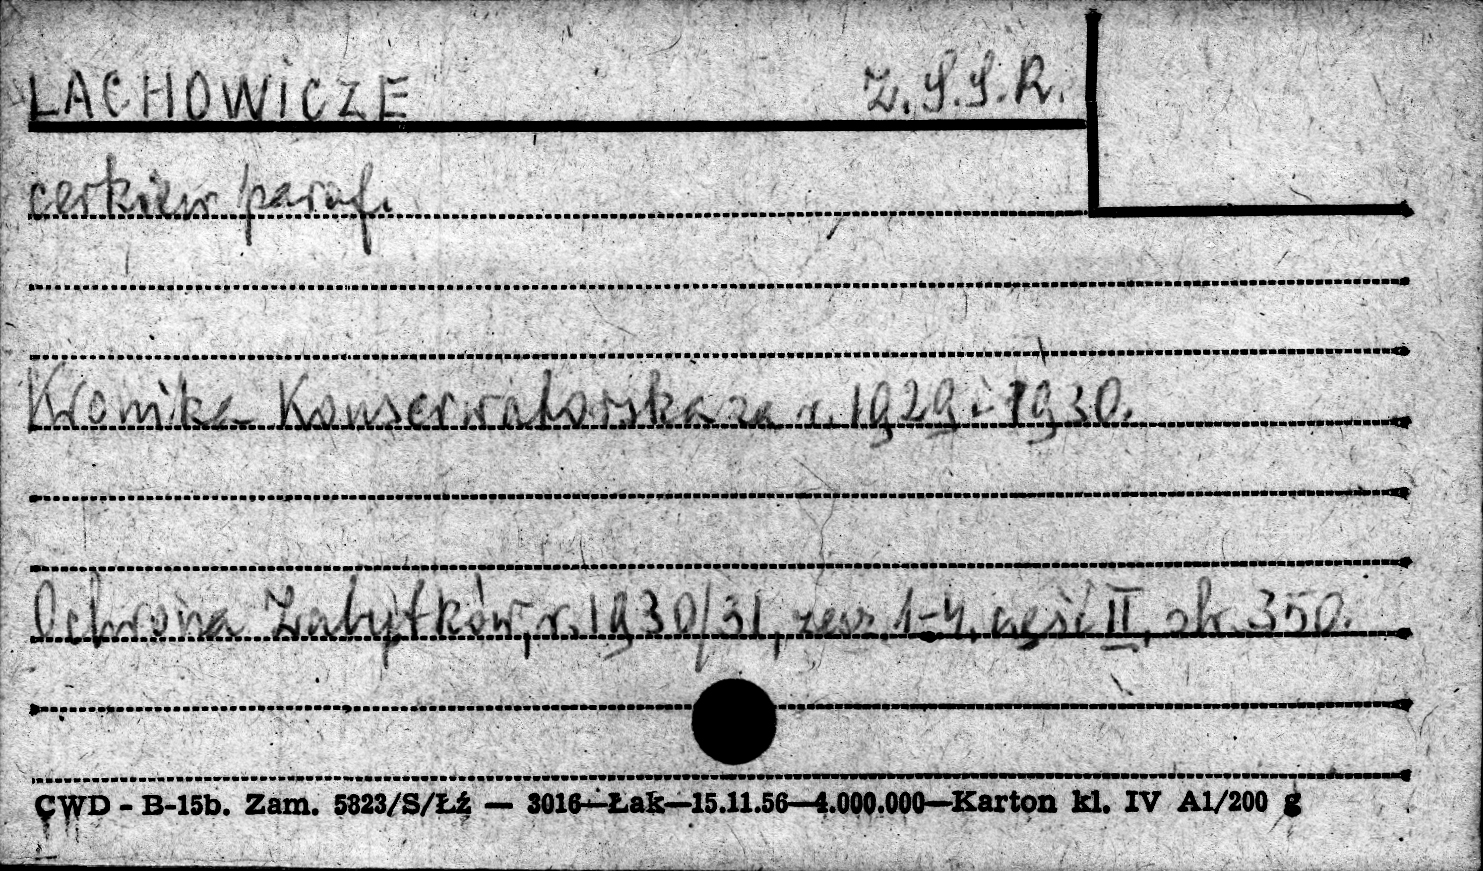 LACHOWICZE Z.S.S.R.
cerkiew paraf.
Kronika Konserwatorska za r. 1929 i 1930.
Ochrona Zabytków, r. 1930/31, zesz. 1-4, część II, str. 350.
CWD - B-15b. Zam. 5823/S/Łź — 3016—Łak—15.11.56—4.000.000—Karton kl. IV A1/200 g